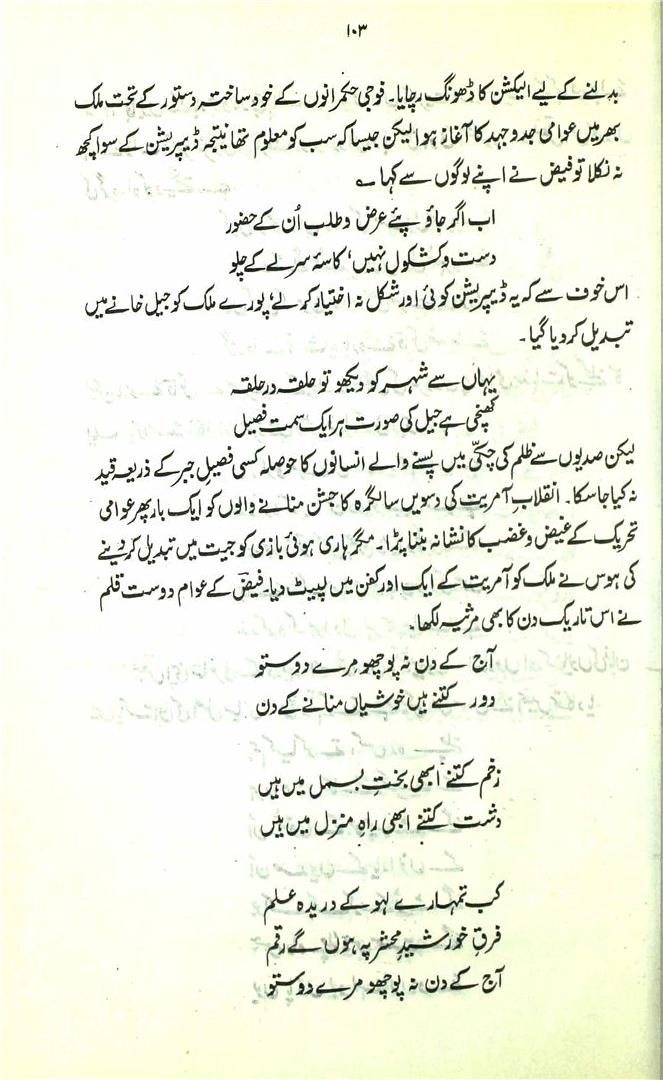 ۱۰۳
بدلنے کے لیے الیکشن کا ڈھونگ رچایا۔ فوجی حکمرانوں کے خود ساختہ دستور کے تحت ملک
بھر میں عوامی جدوجہد کا آغاز ہوا لیکن جیسا کہ سب کو معلوم تھا نتیجہ ڈیپریشن کے سوا کچھ
نہ نکلا تو فیض نے اپنے لوگوں سے کہا ؎
اب اگر جاؤ پئے عرض و طلب اُن کے حضور
دست و کشکول نہیں، کاسۂ سر لے کے چلو
اس خوف سے کہ یہ ڈیپریشن کوئی اور شکل نہ اختیار کر لے، پورے ملک کو جیل خانے میں
تبدیل کر دیا گیا۔
یہاں سے شہر کو دیکھو تو حلقہ در حلقہ
کھنچی ہے جیل کی صورت ہر ایک سمت فصیل
لیکن صدیوں سے ظلم کی چکّی میں پسنے والے انسانوں کا حوصلہ کسی فصیل جبر کے ذریعہ قید
نہ کیا جا سکا۔ انقلابِ آمریت کی دسویں سالگرہ کا جشن منانے والوں کو ایک بار پھر عوامی
تحریک کے غیض و غضب کا نشانہ بننا پڑا۔ مگر ہاری ہوئی بازی کو جیت میں تبدیل کر دینے
کی ہوس نے ملک کو آمریت کے ایک اور کفن میں لپیٹ دیا۔ فیضؔ کے عوام دوست قلم
نے اس تاریک دن کا بھی مرثیہ لکھا۔
آج کے دن نہ پوچھو مِرے دوستو
دور کتنے ہیں خوشیاں منانے کے دن
زخم کتنے ابھی بختِ بسمل میں ہیں
دشت کتنے ابھی راہِ منزل میں ہیں
کب تمہارے لہو کے دریدہ علم
فرقِ خورشیدِ محشر پہ ہوں گے رقم
آج کے دن نہ پوچھو مرے دوستو